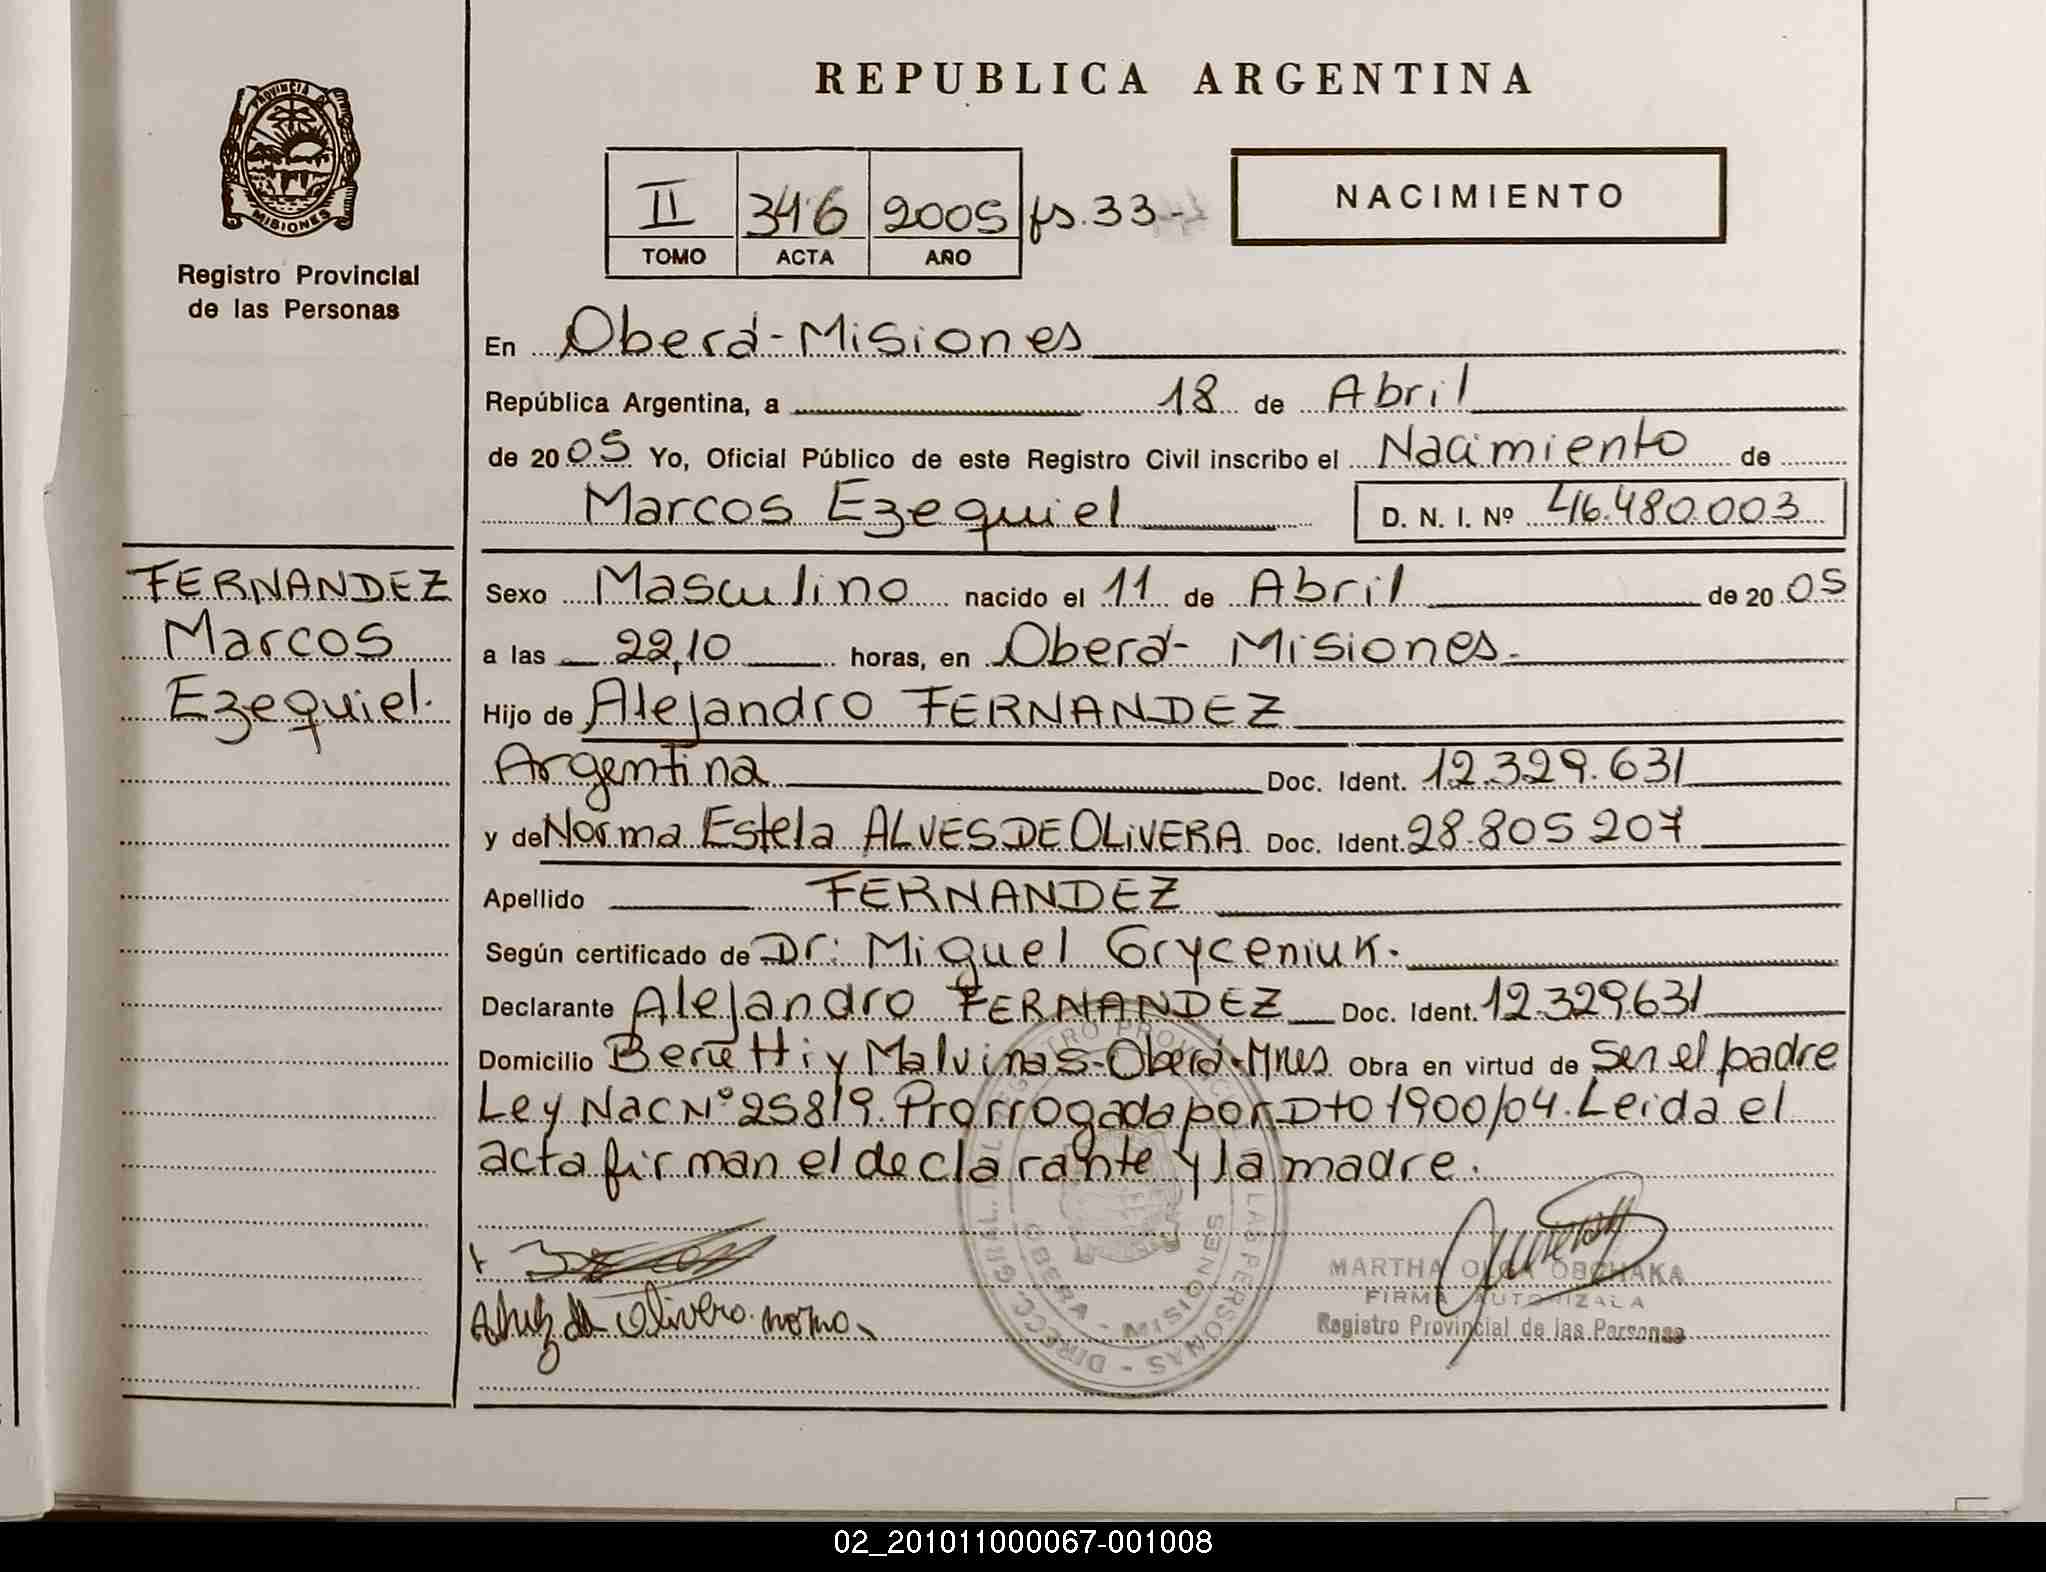 REPUBLICA ARGENTINA
PROVINCIA DE
MISIONES
Registro Provincial
de las Personas
II 346 2005 fs. 33-
TOMO ACTA AÑO
NACIMIENTO
En Oberá-Misiones
República Argentina, a 18 de Abril
de 2005 Yo, Oficial Público de este Registro Civil inscribo el Nacimiento de
Marcos Ezequiel D. N. I. Nº 46.480.003
FERNANDEZ
Marcos
Ezequiel.
Sexo Masculino nacido el 11 de Abril de 2005
a las 22,10 horas, en Oberá- Misiones.
Hijo de Alejandro FERNANDEZ
Argentina Doc. Ident. 12.329.631
y de Norma Estela ALVES DE OLIVERA Doc. Ident. 28.805 207
Apellido FERNANDEZ
Según certificado de Dr: Miguel Gryceniuk.
Declarante Alejandro FERNANDEZ Doc. Ident. 12.329.631
Domicilio Berutti y Malvinas-Oberá-Mnes Obra en virtud de Ser el padre
Ley Nac Nº 25819. Prorrogada por Dto 1900/04. Leida el
acta firman el declarante y la madre.
MARTHA OLGA OBCHAKA
FIRMA AUTORIZADA
Registro Provincial de las Personas
OBERA - MISIONES
02_201011000067-001008